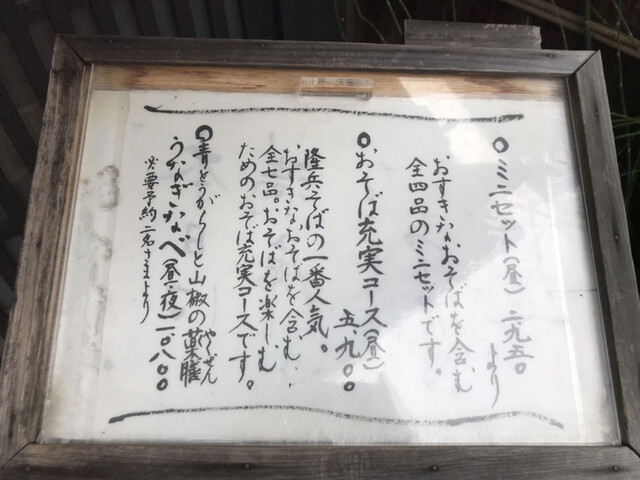 ○ミニセット(昼)二、九五〇より
おすきなおそばを含む
全四品のミニセットです。
○おそば充実コース(昼)
五、九〇〇
隆兵そばの一番人気。
おすきなおそばを含む、
全七品。おそばを楽しむ
ためのおそば充実コースです。
○青とうがらしと山椒の薬膳
やくぜん
うなぎなべ(昼・夜)一〇、八〇〇
※要予約 二名さまより